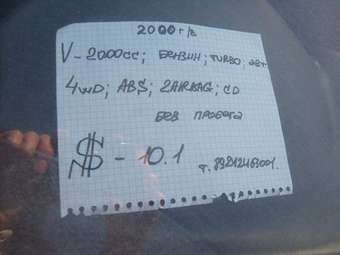 2000 г/в
V-2000cc; БЕНЗИН; TURBO; авт
4WD; ABS; 2AIRBAG; CD
БЕЗ ПРОБЕГА
$ - 10.1